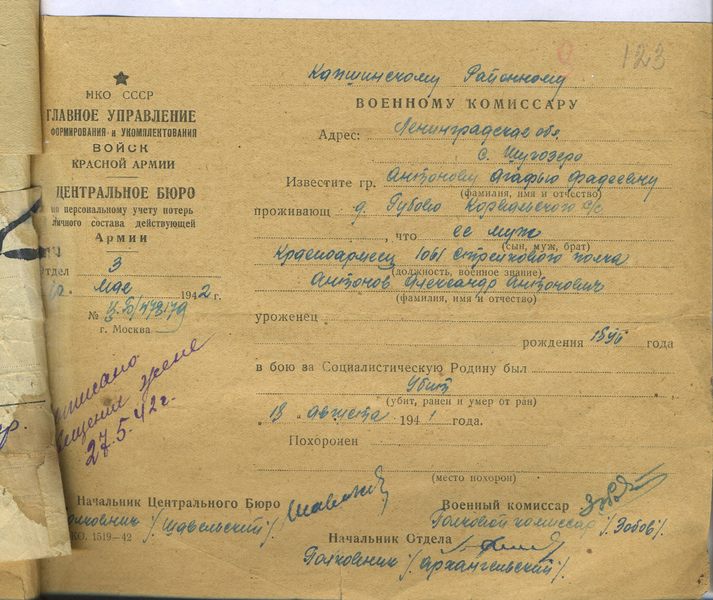 123
НКО СССР
ГЛАВНОЕ УПРАВЛЕНИЕ
ФОРМИРОВАНИЯ и УКОМПЛЕКТОВАНИЯ
ВОЙСК
КРАСНОЙ АРМИИ
ЦЕНТРАЛЬНОЕ БЮРО
по персональному учету потерь
личного состава действующей
Армии
Отдел 3
мае 1942 г.
№
г. Москва
жене
27.5.42г.
Капшинскому Районному
ВОЕННОМУ КОМИССАРУ
Адрес: Ленинградская обл.
с. Шугозеро
Известите гр. Антонову Агафью Фадеевну
(фамилия, имя и отчество)
проживающ д. Гувово Корвальского с/с
, что ее муж
(сын, муж, брат)
Красноармеец 1061 стрелкового полка
(должность, военное звание)
Антонов Александр Антонович
(фамилия, имя и отчество)
уроженец
рождения года
в бою за Социалистическую Родину был
Убит
(убит, ранен и умер от ран)
августа 1941 года.
Похоронен
(место похорон)
Начальник Центрального Бюро
Полковник /Шавельский/
КО. 1519—42
Военный комиссар
Полковой комиссар /Зобов/.
Начальник Отдела
Полковник /Архангельский/.